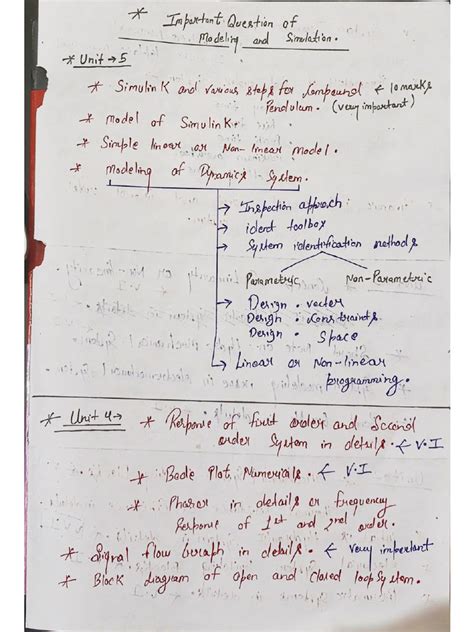 * Important Question of
Modeling and Simulation.
* Unit → 5
* SimulinK and various steps for Compound ← 10 marks
Pendulum. (very important)
* Model of SimulinK.
* Simple linear or Non-linear model.
* Modeling of Dynamics System.
→ Inspection approch
→ ident toolbox
→ System identification methods
Parametric Non-Parametric
→ Design · vector
Design · Constraints
Design · Space
→ Linear or Non-linear
programming.
* Unit 4 → * Response of first order and Second
order System in details. ← V.I
* Bode Plot Numericals. ← V.I
* Phasor in details or frequency
Response of 1st and 2nd order.
* Signal flow Graph in details. ← very important
* Block diagram of open and closed loop System.